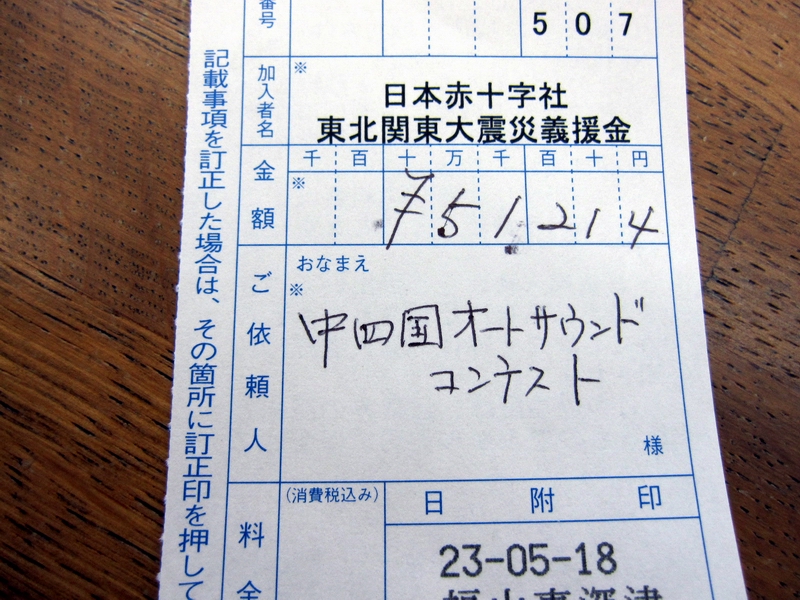 番号
507
加入者名
※
日本赤十字社
東北関東大震災義援金
金額
千百十万千百十円
※
¥51214
ご依頼人
おなまえ
※
中四国オートサウンド
コンテスト
様
料金
(消費税込み)
日附印
23-05-18
福山東深津
記載事項を訂正した場合は、その箇所に訂正印を押して